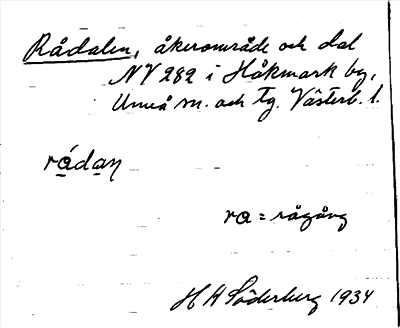 Rådalen, åkerområde och dal
NV 282 i Håkmark by,
Umeå sn. och tg. Västerb. l.
rådaɳ
ra = rågång
H H Söderberg 1934